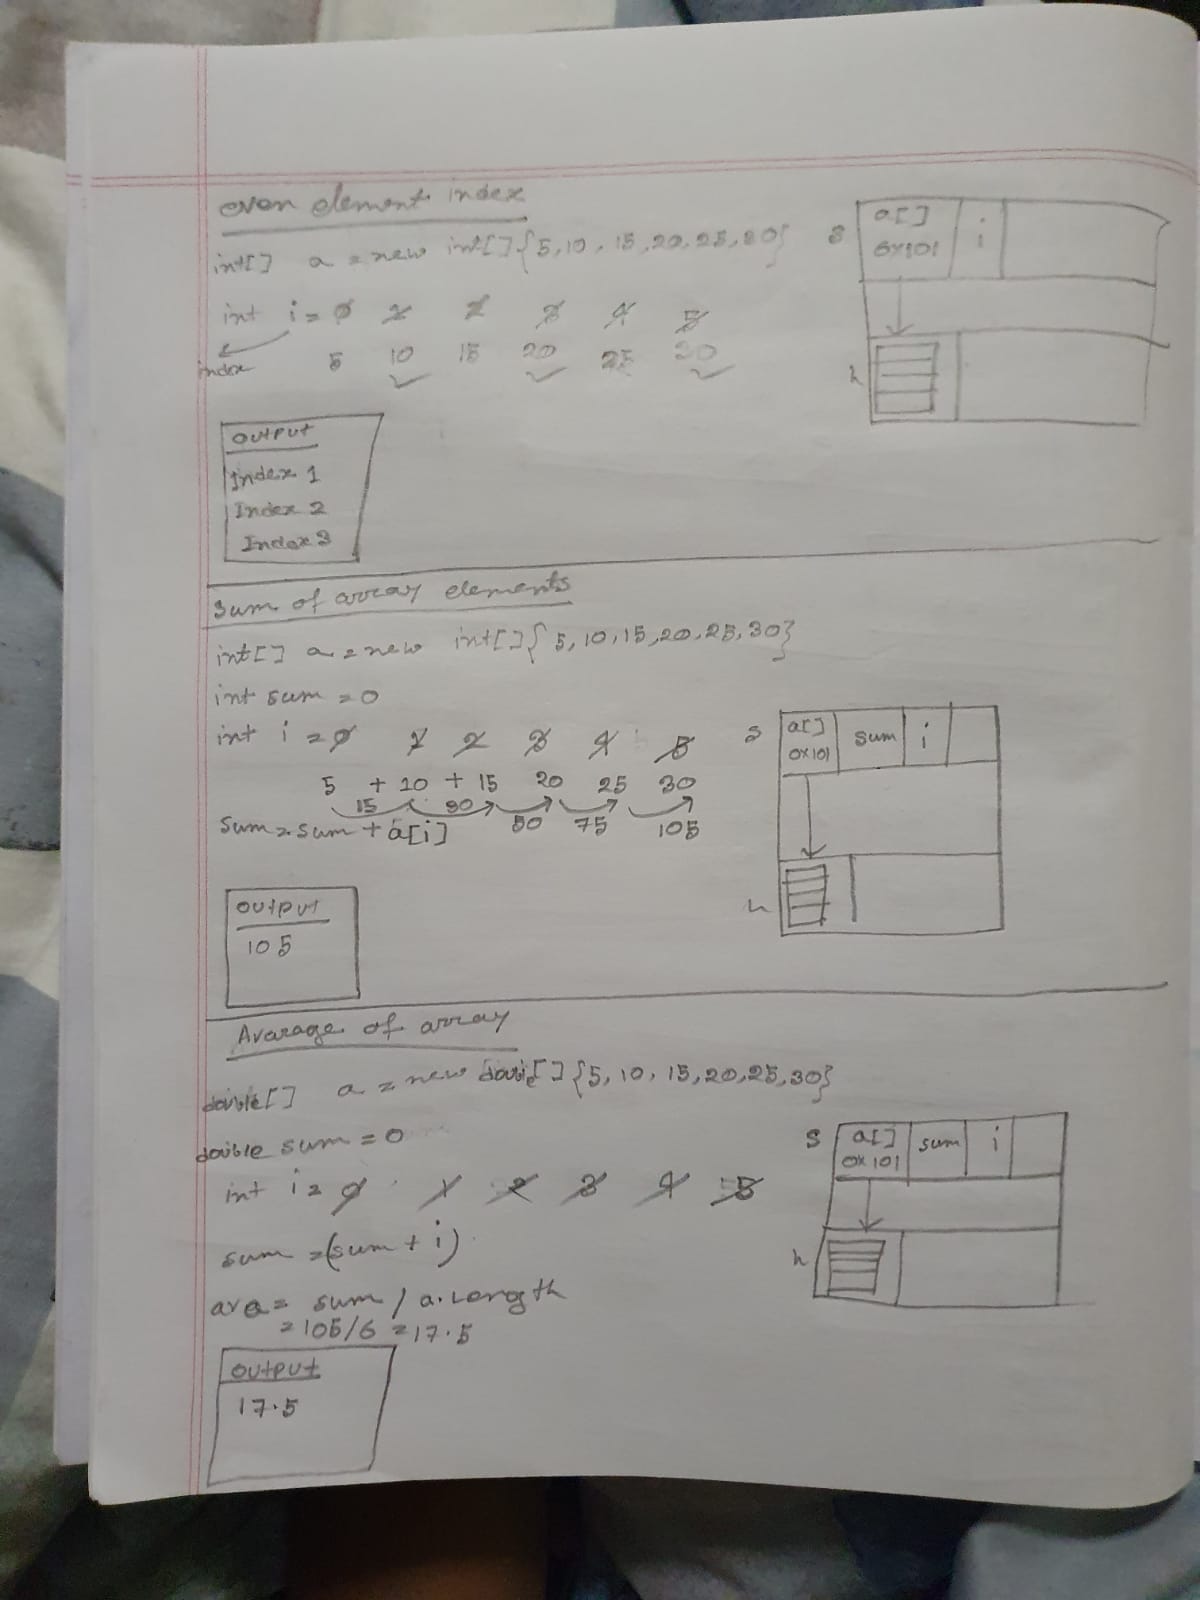 even element index
int[] a = new int[]{5,10,15,20,25,30}
int i = 0 1 2 3 4 5
index
5 10 15 20 25 30
S a[] i
0x101
h
output
Index 1
Index 2
Index 3
Sum of array elements
int[] a = new int[]{5,10,15,20,25,30}
int sum = 0
int i = 0 1 2 3 4 5
5 + 10 + 15 20 25 30
15 30 50 75 105
sum = sum + a[i]
S a[] sum i
0x101
h
output
105
Avarage of array
double[] a = new double[]{5,10,15,20,25,30}
double sum = 0
int i = 0 1 2 3 4 5
sum = (sum + i)
ava = sum / a.length
= 105/6 = 17.5
S a[] sum i
0x101
h
output
17.5